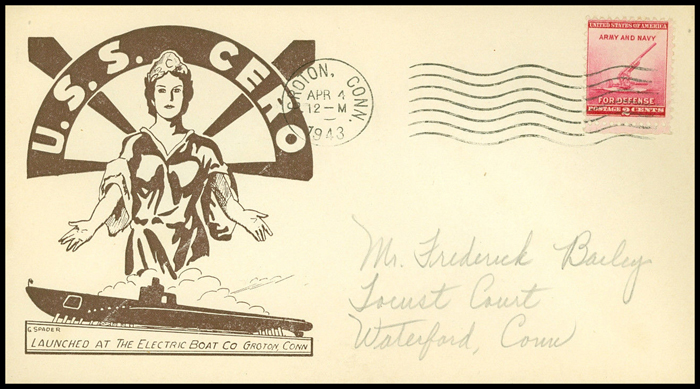 U.S.S. CERO
C
G SPADER
LAUNCHED AT THE ELECTRIC BOAT CO GROTON, CONN
GROTON, CONN.
APR 4
12-M
1943
UNITED STATES OF AMERICA
ARMY AND NAVY
FOR DEFENSE
POSTAGE 2 CENTS
Mr. Frederick Bailey
Locust Court
Waterford, Conn